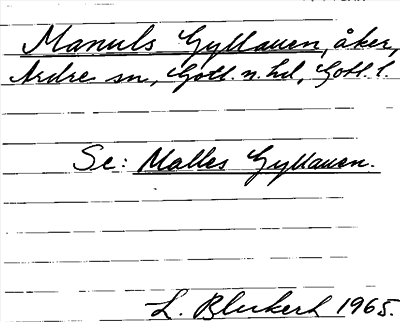 Manuls Gyllauen, åker,
Ardre sn, Gotl. n. hd, Gotl. l.
Se: Malles Gyllauen.
L. Bleckert 1965.